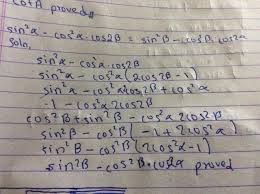 CotA proved
sin²α - cos²α·cos2β = sin²β - cos²β·cos2α
Soln,
sin²α - cos²α·cos2β
sin²α - cos²α(2cos²β-1)
sin²α - cos²α2cos²β + cos²α
-1 - cos²α2cos²β
cos²β + sin²β - cos²α2cos²β
sin²β - cos²β(-1+2cos²α)
sin²β - cos²β(2cos²α-1)
sin²β - cos²β·cos2α proved